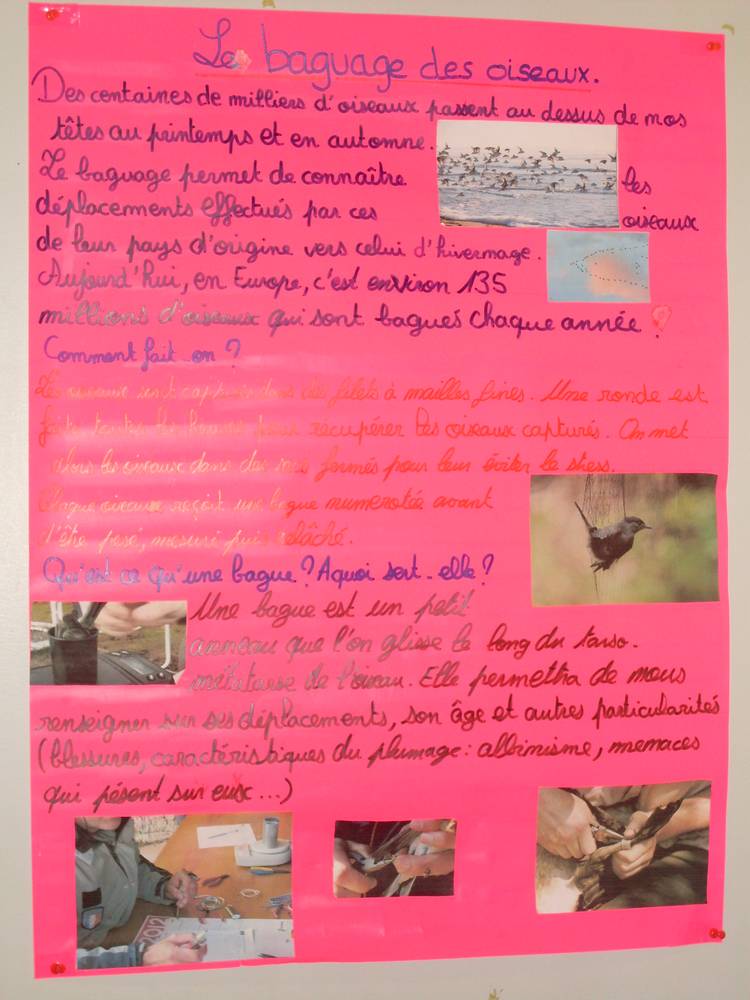 Le baguage des oiseaux.
Des centaines de milliers d'oiseaux passent au dessus de nos
têtes au printemps et en automne.
Le baguage permet de connaître les
déplacements effectués par ces oiseaux
de leur pays d'origine vers celui d'hivernage.
Aujourd'hui, en Europe, c'est environ 135
millions d'oiseaux qui sont bagués chaque année !
Comment fait-on ?
Les oiseaux sont capturés dans des filets à mailles fines. Une ronde est
faite toutes les heures pour récupérer les oiseaux capturés. On met
alors les oiseaux dans des sacs fermés pour leur éviter le stress.
Chaque oiseau reçoit une bague numerotée avant
d'être pesé, mesuré puis relâché.
Qu'est ce qu'une bague ? A quoi sert-elle ?
Une bague est un petit
anneau que l'on glisse le long du tarso-
métatarse de l'oiseau. Elle permettra de nous
renseigner sur ses déplacements, son âge et autres particularités
(blessures, caractéristiques du plumage : albinisme, menaces
qui pésent sur eux ...)
2012